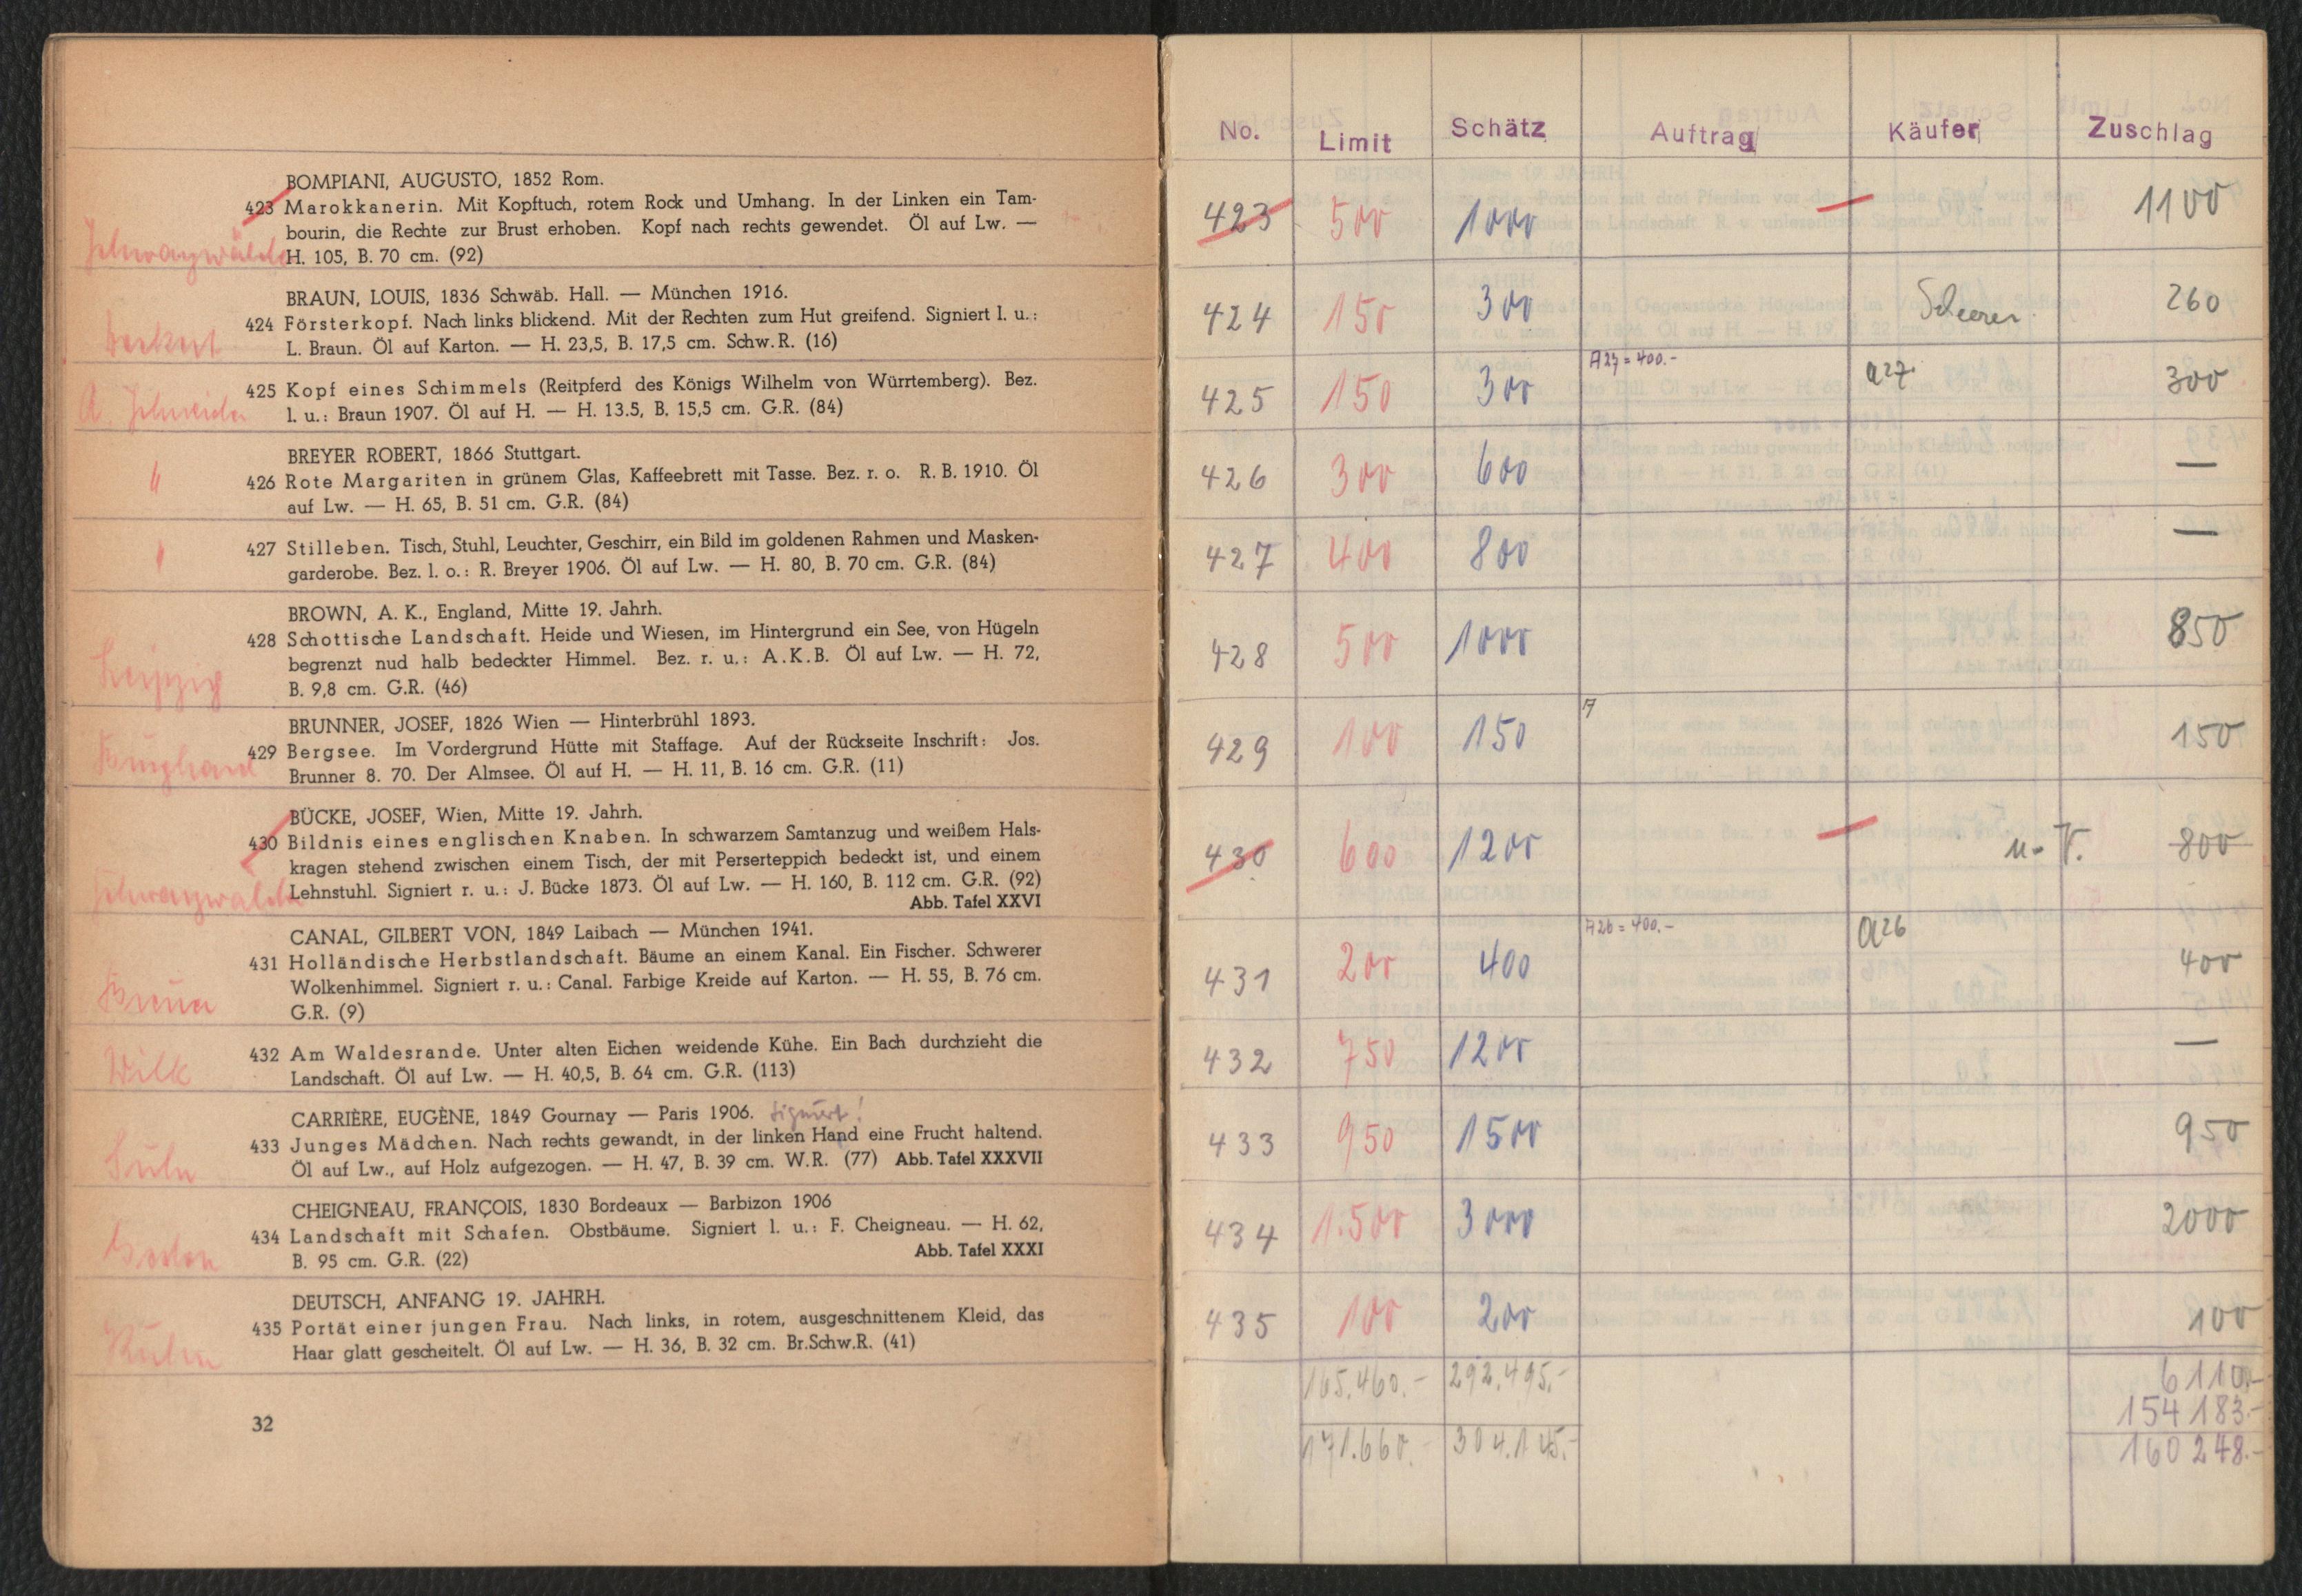 BOMPIANI, AUGUSTO, 1852 Rom.
423 Marokkanerin. Mit Kopftuch, rotem Rock und Umhang. In der Linken ein Tam-
bourin, die Rechte zur Brust erhoben. Kopf nach rechts gewendet. Öl auf Lw. —
H. 105, B. 70 cm. (92)
BRAUN, LOUIS, 1836 Schwäb. Hall. — München 1916.
424 Försterkopf. Nach links blickend. Mit der Rechten zum Hut greifend. Signiert l. u.:
L. Braun. Öl auf Karton. — H. 23,5, B. 17,5 cm. Schw.R. (16)
A. Schneider
425 Kopf eines Schimmels (Reitpferd des Königs Wilhelm von Würrtemberg). Bez.
l. u.: Braun 1907. Öl auf H. — H. 13.5, B. 15,5 cm. G.R. (84)
BREYER ROBERT, 1866 Stuttgart.
"
426 Rote Margariten in grünem Glas, Kaffeebrett mit Tasse. Bez. r. o. R. B. 1910. Öl
auf Lw. — H. 65, B. 51 cm. G.R. (84)
427 Stilleben. Tisch, Stuhl, Leuchter, Geschirr, ein Bild im goldenen Rahmen und Masken-
garderobe. Bez. l. o.: R. Breyer 1906. Öl auf Lw. — H. 80, B. 70 cm. G.R. (84)
BROWN, A. K., England, Mitte 19. Jahrh.
428 Schottische Landschaft. Heide und Wiesen, im Hintergrund ein See, von Hügeln
begrenzt nud halb bedeckter Himmel. Bez. r. u.: A.K.B. Öl auf Lw. — H. 72,
Leipzig
B. 9,8 cm. G.R. (46)
BRUNNER, JOSEF, 1826 Wien — Hinterbrühl 1893.
429 Bergsee. Im Vordergrund Hütte mit Staffage. Auf der Rückseite Inschrift: Jos.
Brunner 8. 70. Der Almsee. Öl auf H. — H. 11, B. 16 cm. G.R. (11)
BÜCKE, JOSEF, Wien, Mitte 19. Jahrh.
430 Bildnis eines englischen Knaben. In schwarzem Samtanzug und weißem Hals-
kragen stehend zwischen einem Tisch, der mit Perserteppich bedeckt ist, und einem
Lehnstuhl. Signiert r. u.: J. Bücke 1873. Öl auf Lw. — H. 160, B. 112 cm. G.R. (92)
Abb. Tafel XXVI
CANAL, GILBERT VON, 1849 Laibach — München 1941.
431 Holländische Herbstlandschaft. Bäume an einem Kanal. Ein Fischer. Schwerer
Wolkenhimmel. Signiert r. u.: Canal. Farbige Kreide auf Karton. — H. 55, B. 76 cm.
G.R. (9)
432 Am Waldesrande. Unter alten Eichen weidende Kühe. Ein Bach durchzieht die
Wilk
Landschaft. Öl auf Lw. — H. 40,5, B. 64 cm. G.R. (113)
CARRIÈRE, EUGÈNE, 1849 Gournay — Paris 1906. signiert!
433 Junges Mädchen. Nach rechts gewandt, in der linken Hand eine Frucht haltend.
Öl auf Lw., auf Holz aufgezogen. — H. 47, B. 39 cm. W.R. (77) Abb. Tafel XXXVII
CHEIGNEAU, FRANÇOIS, 1830 Bordeaux — Barbizon 1906
434 Landschaft mit Schafen. Obstbäume. Signiert l. u.: F. Cheigneau. — H. 62,
B. 95 cm. G.R. (22) Abb. Tafel XXXI
DEUTSCH, ANFANG 19. JAHRH.
435 Portät einer jungen Frau. Nach links, in rotem, ausgeschnittenem Kleid, das
Haar glatt gescheitelt. Öl auf Lw. — H. 36, B. 32 cm. Br.Schw.R. (41)
32
No. Limit Schätz Auftrag Käufer Zuschlag
423 500 1000 — 1100
424 150 300 Scheerer 260
425 150 300 A27 = 400.- a27. 300
426 300 600 —
427 400 800 —
428 500 1000 850
429 100 150 A 150
430 600 1200 — u. V. 800
431 200 400 A26 = 400.- a26 400
432 750 1200 —
433 950 1500 950
434 1.500 3000 2000
435 100 200 100
165.460.- 292.495.- 6110.-
154183.-
171.660.- 304.145.- 160248.-